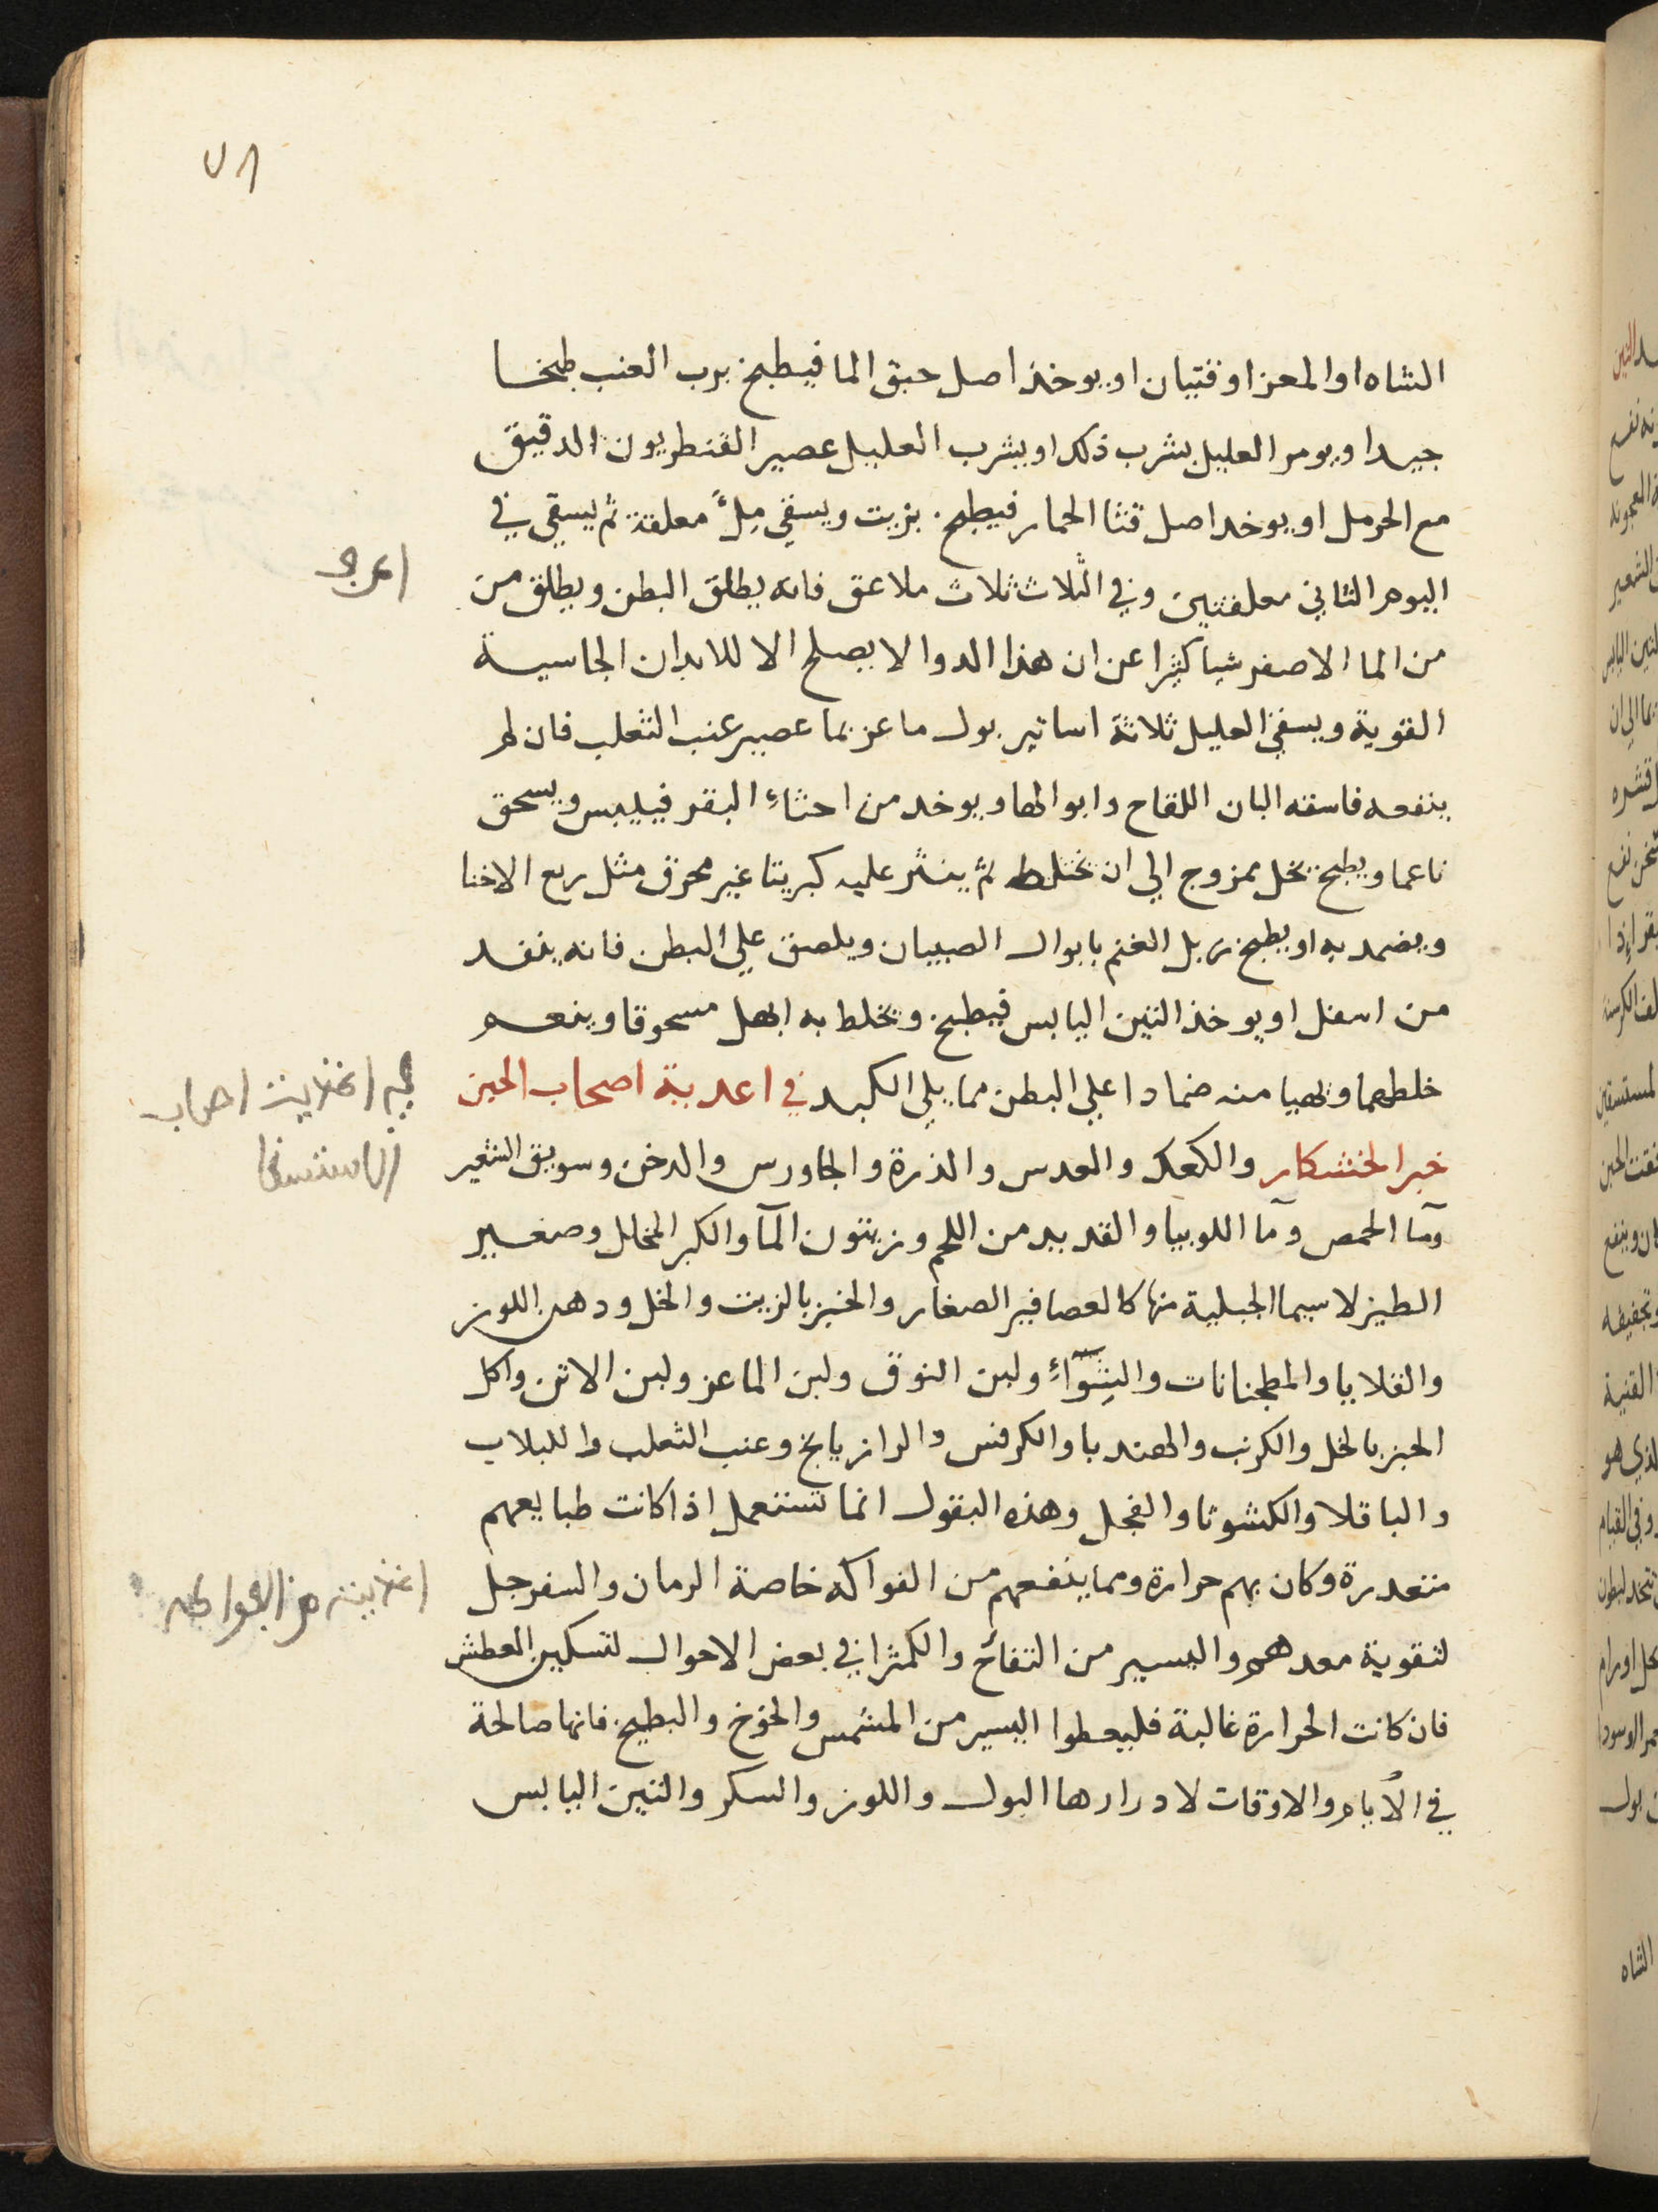 ٧١
الشاه او المعز اوقتيان او يوخذ اصل حبق الما فيطبخ برب العنب طبخا
جيدا ويومر العليل بشرب ذلك او يشرب العليل عصير القنطريون الدقيق
مع الحرمل او يوخد اصل قثا الحمار فيطبخ بزيت ويسقي مِلءَ معلقة ثم يسقي في
اليوم الثاني معلقتين وفي الثلاث ثلاث ملاعق فانه يطلق البطن ويطلق من
من الما الاصفر شيا كثيرا عن ان هذا الدوا لا يصلح الا للابدان الجاسية
القوية ويسقي العليل ثلاثة اساتير بول ماعز بما عصير عنب الثعلب فان لم
ينفعه فاسقه البان اللقاح وابوالها ويوخد من احثاءِ البقر فييبس ويسحق
ناعما ويطبخ بخل ممزوج الي ان يختلط ثم ينثر عليه كبريتا غير محرق مثل ربع الاخثا
ويضمد به او يطبخ زبل الغنم بابوال الصبيان ويلصق علي البطن فانه ينفد
من اسفل او يوخذ التين اليابس فيطبخ ويخلط به ابهل مسحوقا وينعم
خلطهما ويهيا منه ضمادا علي البطن مما يلي الكبد في اعدية اصحاب الحبن
خبز الخشكار والكعك والعدس والذرة والجاورس والدخن وسويق الشعير
ومآ الحمص ومآ اللوبيا والقديد من اللحم وزيتون المآ والكبر المخلل وصغير
الطير لا سيما الجبلية منها كالعصافير الصغار والخبز بالزيت والخل ودهن اللوز
والقلايا والمطجنانات والشِوَآءِ ولبن النوق ولبن الماعز ولبن الاتن واكل
الخبز بالخل والكرنب والهندبا والكرفس والرازيانج وعنب الثعلب واللبلاب
والباقلا والكشوثا والفجل وهذه البقول انما تستعمل اذا كانت طبايعهم
متعدرة وكان بهم حرارة ومما ينفعهم من الفواكه خاصة الرمان والسفرجل
لتقوية معدهم واليسير من التفاح والكمثرا في بعض الاحوال لتسكين العطش
فان كانت الحرارة غالبة فليعطوا اليسير من المشمس والخوخ والبطيخ فانها صالحة
في الايام والاوقات لادرارها البول واللوز والسكر والتين اليابس
اغذيت اصحاب
الاستسقا
اغذيت من الفواكه